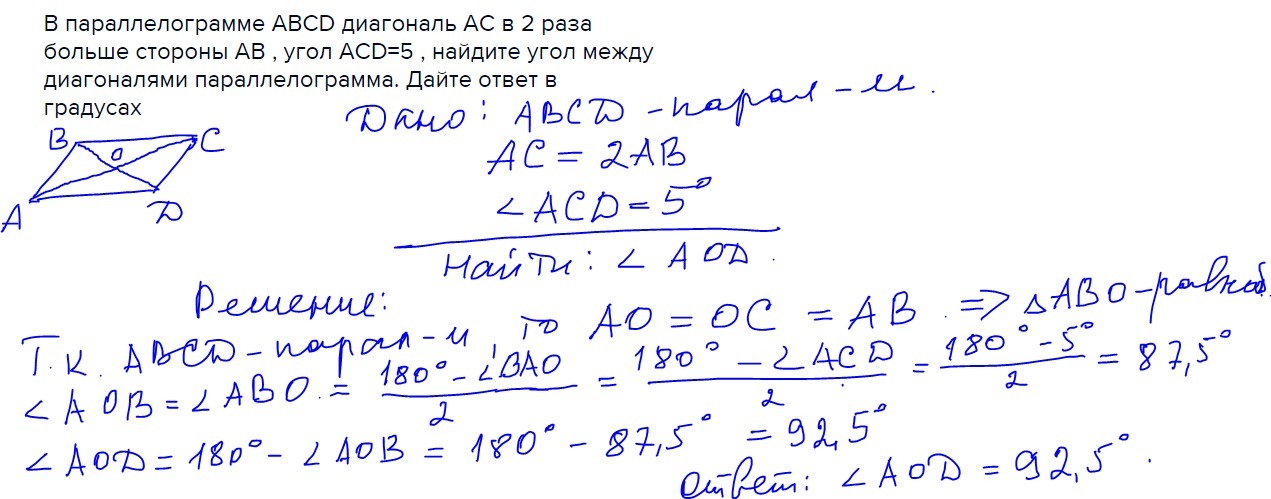 В параллелограмме ABCD диагональ AC в 2 раза
больше стороны AB , угол ACD=5 , найдите угол между
диагоналями параллелограмма. Дайте ответ в
градусах
Дано: ABCD - парал-м.
B O C
AC = 2AB
A D
∠ACD = 5°
Найти: ∠AOD.
Решение:
Т.к. ABCD - парал-м, то AO = OC = AB. => △ABO - равноб.
∠AOB = ∠ABO = (180° - ∠BAO)/2 = (180° - ∠ACD)/2 = (180° - 5°)/2 = 87,5°
∠AOD = 180° - ∠AOB = 180° - 87,5° = 92,5°
Ответ: ∠AOD = 92,5°.